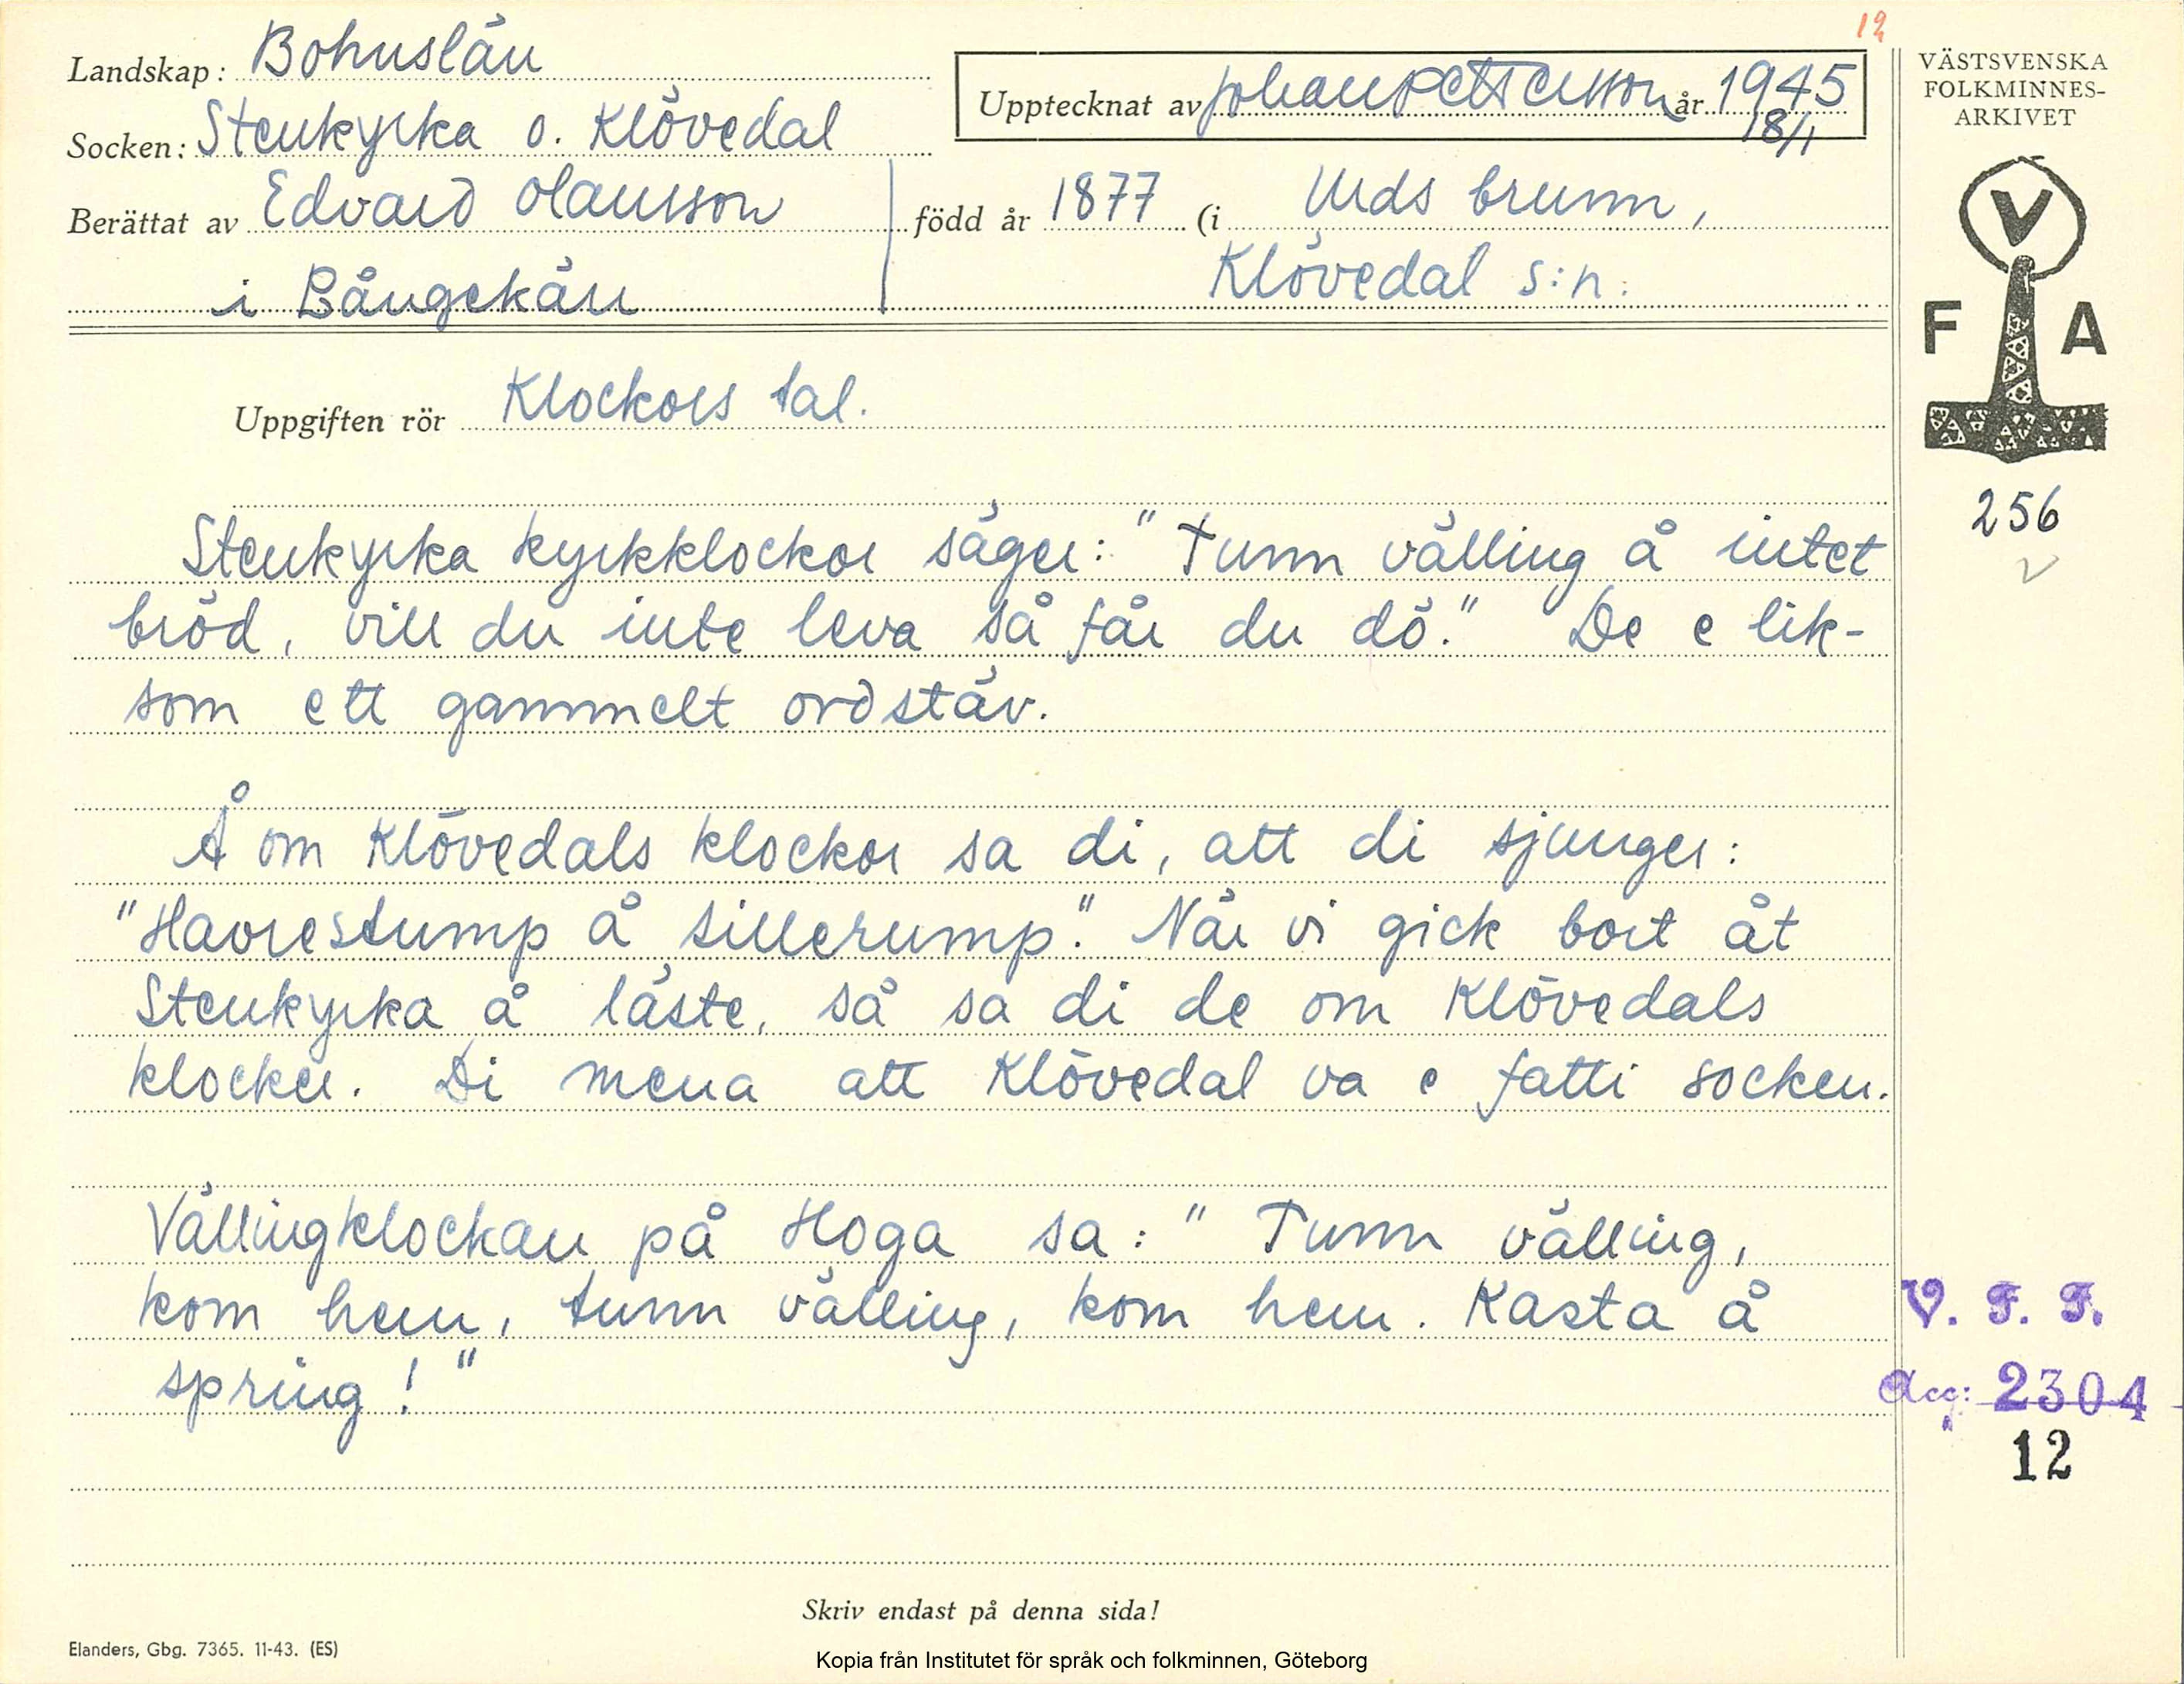 12
Landskap: Bohuslän
Upptecknat av Johan Pettersson år 1945
18/1
Socken: Stenkyrka o. Klövedal
Berättat av Edvard Olausson född år 1877 (i Urds brunn,
i Bångekärr Klövedal s:n.
VÄSTSVENSKA
FOLKMINNES-
ARKIVET
V
F A
256
Uppgiften rör Klockors tal.
Stenkyrka kyrkklockor säger: "Tunn välling å intet
bröd, vill du inte leva så får du dö." De e lik-
som ett gammelt ordstäv.
Å om Klövedals klockor sa di, att di sjunger:
"Havrestump å sillerump." När vi gick bort åt
Stenkyrka å läste, så sa di de om Klövedals
klocker. Di mena att Klövedal va e fatti socken.
Vällingklockan på Hoga sa: "Tunn välling,
kom hem, tunn välling, kom hem. Kasta å
spring!"
V. F. F.
Acc: 2304
12
Skriv endast på denna sida!
Elanders, Gbg. 7365. 11-43. (ES)
Kopia från Institutet för språk och folkminnen, Göteborg